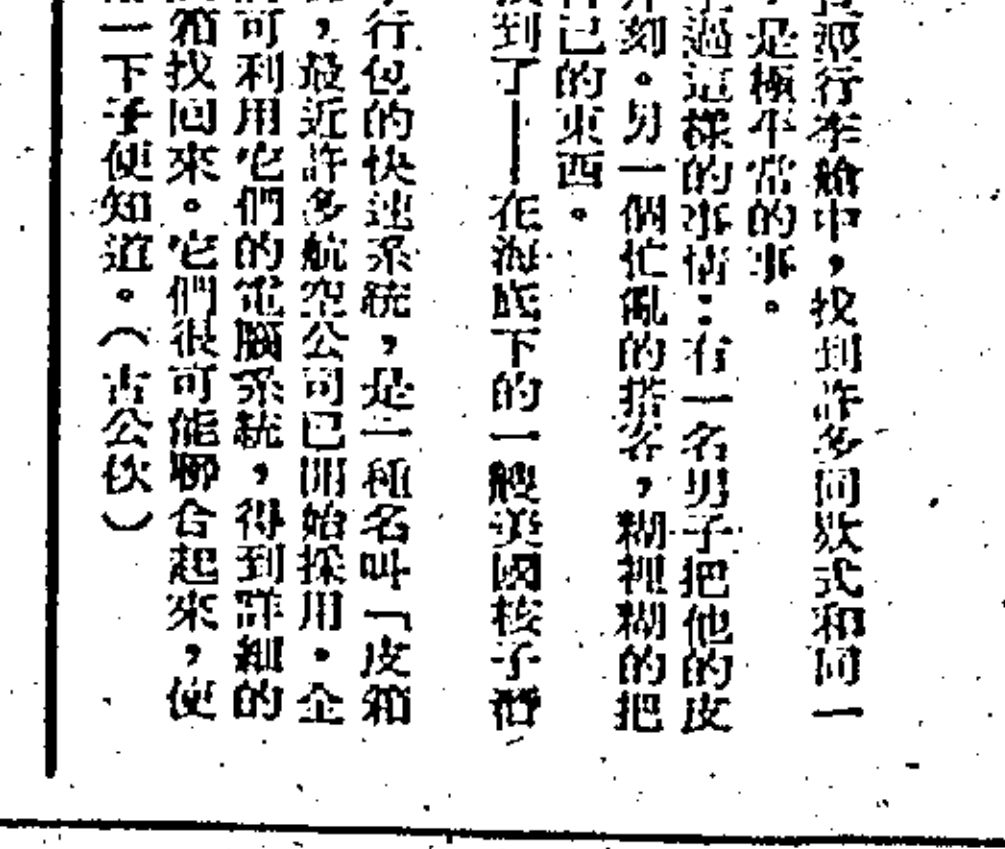 行李艙中，找到許多同欵式和同一
是極平常的事。
過這樣的事情：有一名男子把他的皮
刻。另一個忙亂的搭客，糊裡糊的把
己的東西。
到了——在海底下的一艘美國核子潛
行包的快速系統，是一種名叫「皮箱
，最近許多航空公司已開始採用。企
可利用它們的電腦系統，得到詳細的
箱找回來。它們很可能聯合起來，便
一下子便知道。（古公佚）